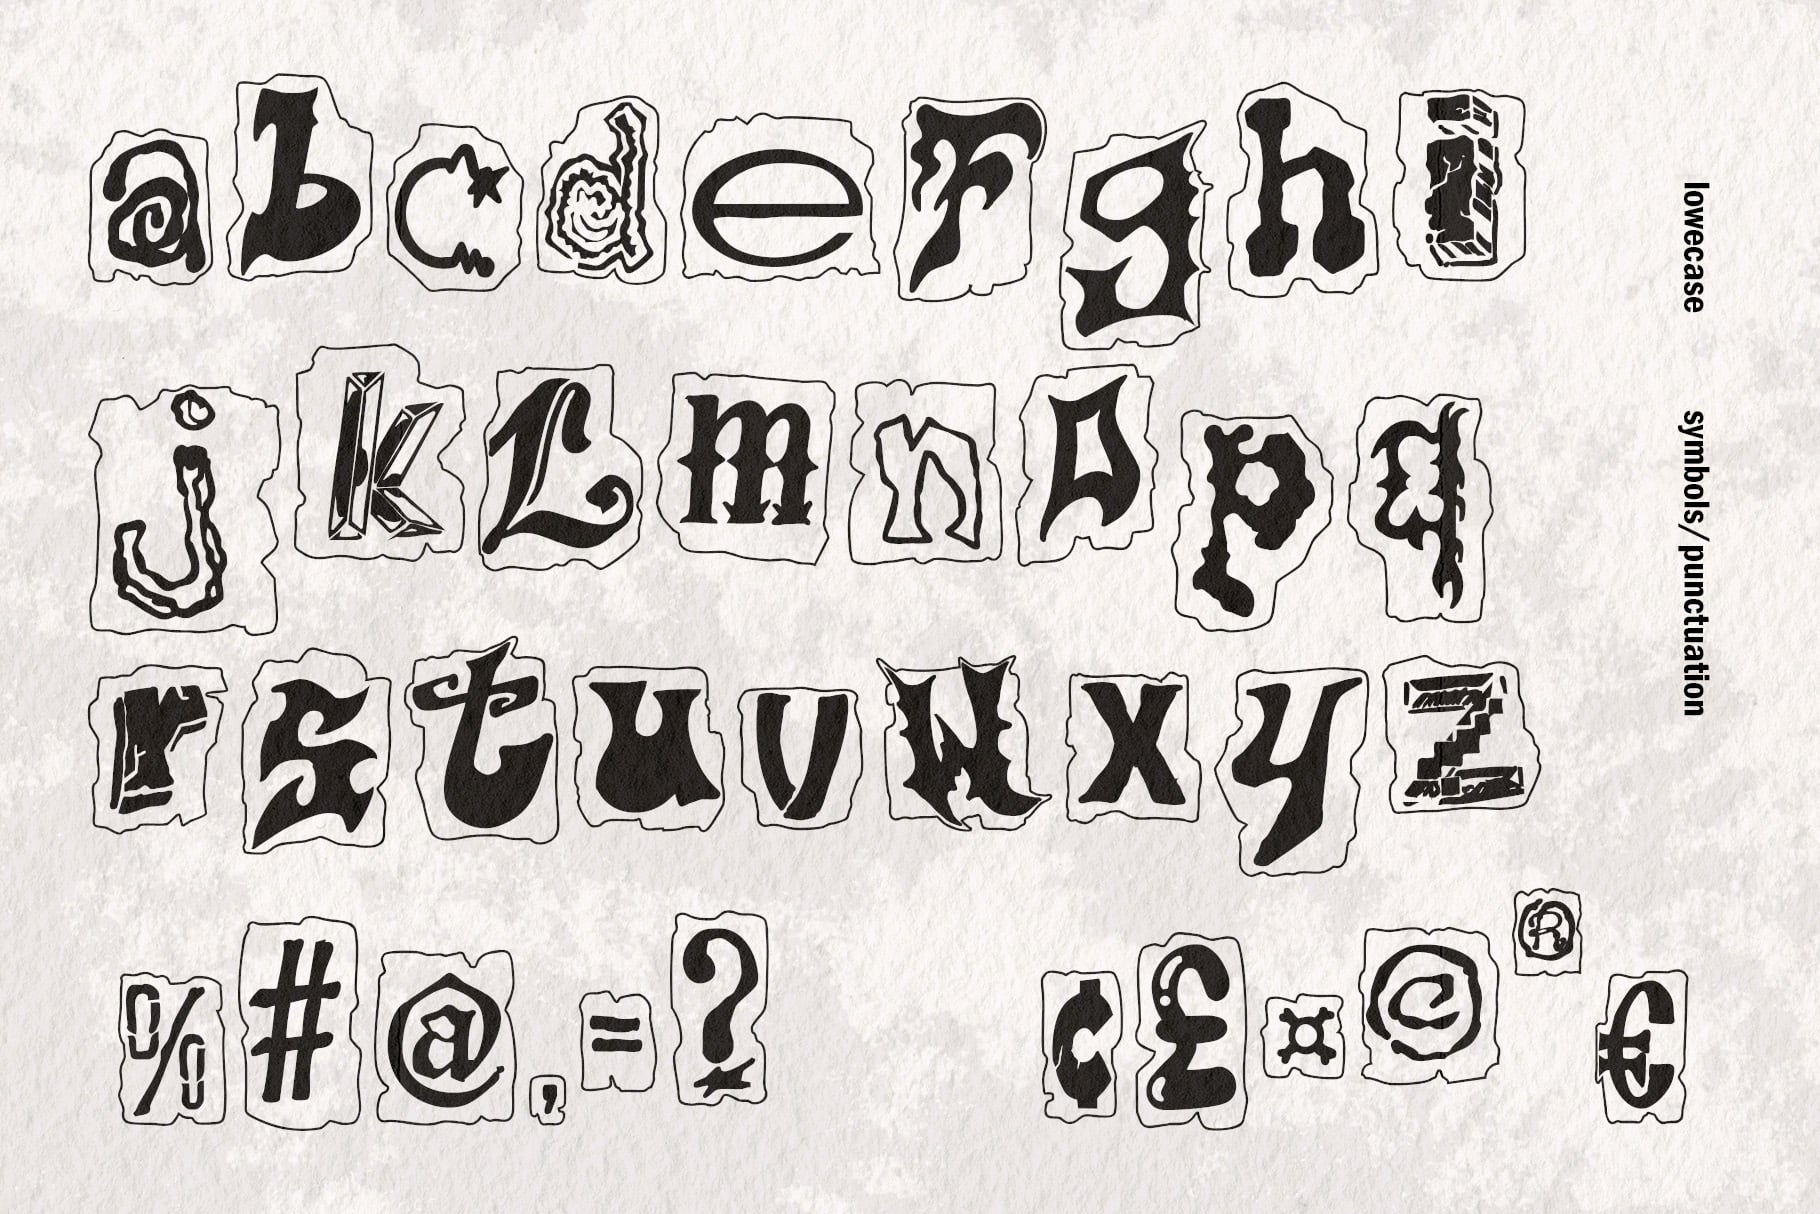 a b c d e f g h i
j k L m n o p q
r s t u v w x y z
% # @ , = ? ¢ £ ¤ © ® €
lowecase
symbols/punctuation